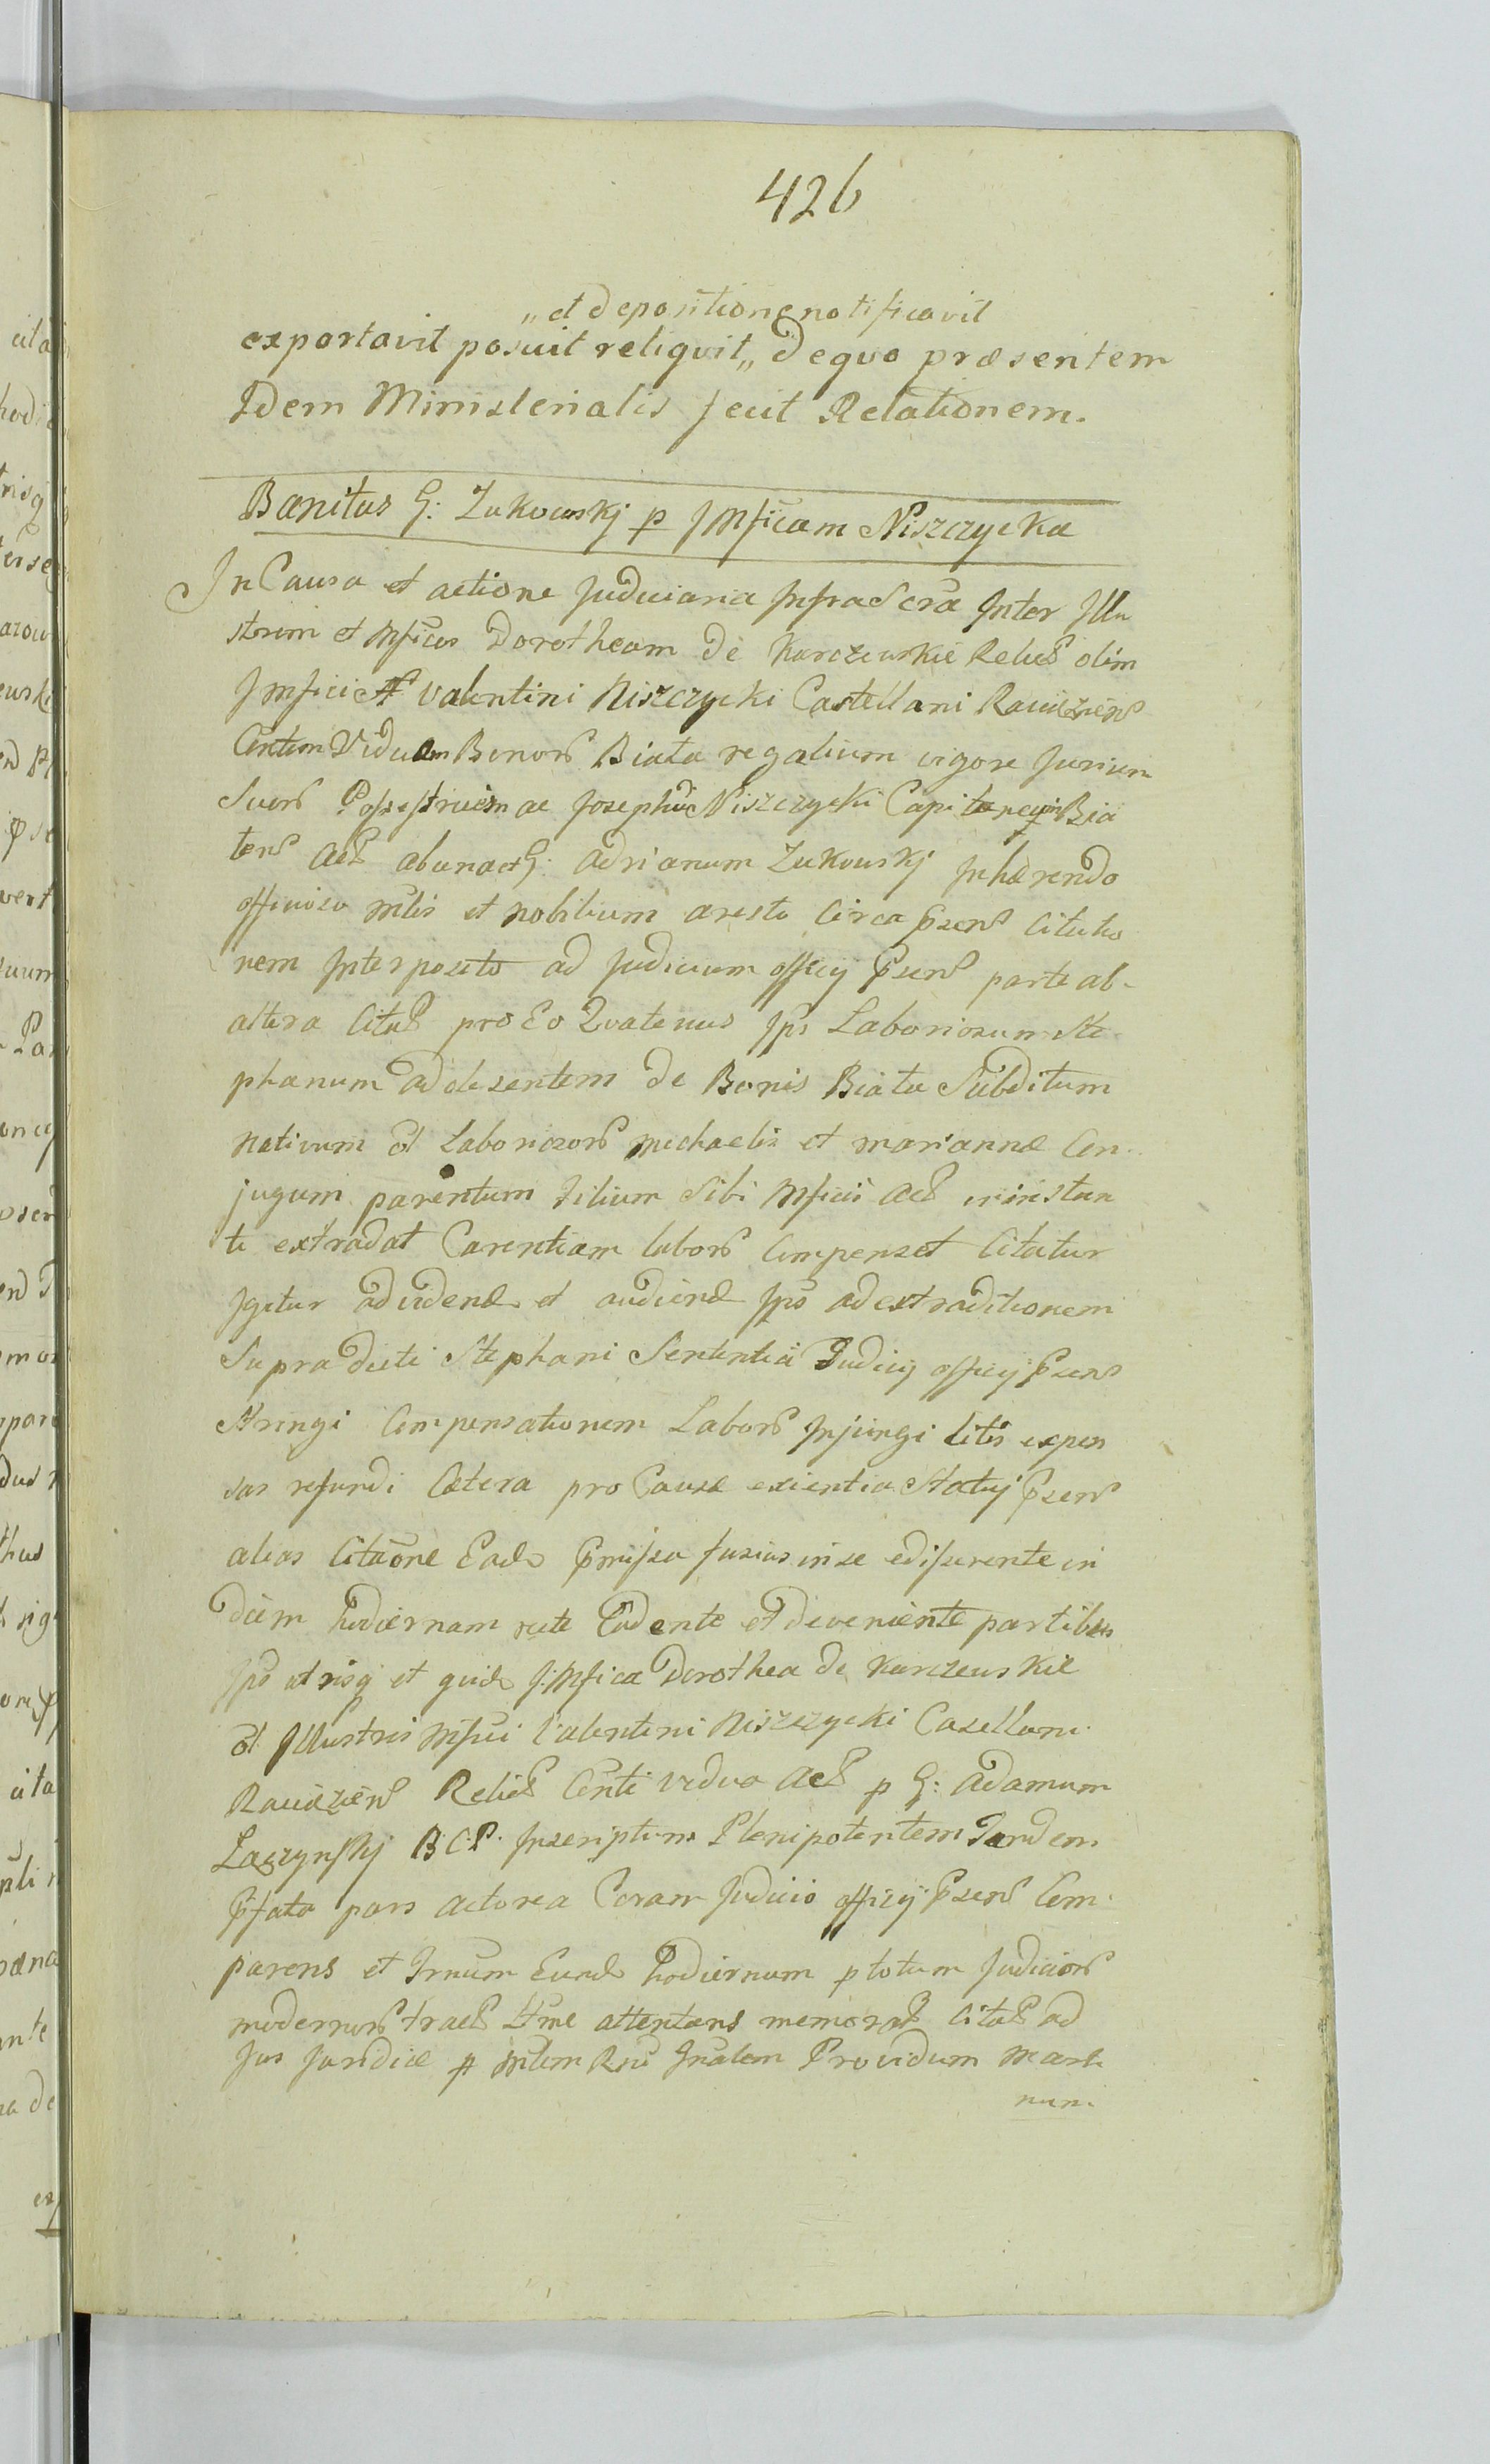 426
„et depositione notificavit
exportavit posuit reliquit„ de quo præsentem
Idem Ministerialis fecit Relationem.
Banitus G: Zukowskj p JMficam Niszczycka
In Causa et actione Judiciaria Infra Scra Inter Illu
strem et Mficos Dorotheam de Karczewskie Relict olim
JMfici Valentini Niszczycki Castellani Rawień
Viduam Bonor Biała regalium vigore Jurium
Suor Possestricem ac Josephum Niszczycki Capitaneum Bia
len Act ab una et G: Adrianum Zukowskj Inhærendo
officioso mlis et nobilium aresto Circa Psens Citatio
nem Interposito ad Judicium officij Psens parte ab
altera Citat pro Eo Quatenus Ips Laboriosum Ste
phanum adolescentem de Bonis Biała Subditum
nativum ol Laboriosor Michaelis et mariannæ Con
jugum parentum filium Sibi Mficis Act in instan
ti extradat Carentiam labor Compenset Citatur
Igitur ad videnđ et audienđ Ips ad extraditionem
Supradicti Stephani Sententia Judicij officij Psens
Stringi Compensationem Labor Injungi litis expen
sas refundi Cætera pro Causæ exientia Statuj Psens
alias Citaone Ead Pmissa fusius in se edisserente in
diem hodiernam recte Cadente et deveniente partibus
Ips utrisq et quid J:Mfica Dorothea de Karczewskie
ol Illustris Mfici Valentini Niszczycki Casellani
Rawień Relict vidua Act p G: Adamum
Łączynskj B.C.P. Inscriptum Plenipotentem Tandem
Pfata pars actorea Coram Judicio officij Psens Com
parens et Trnum Eund hodiernum p totum Judicior
modernor tract Ltme attentans memorat Citat ad
Jus Juridice p Mlem Rni Gnalem Providum Marti
num.